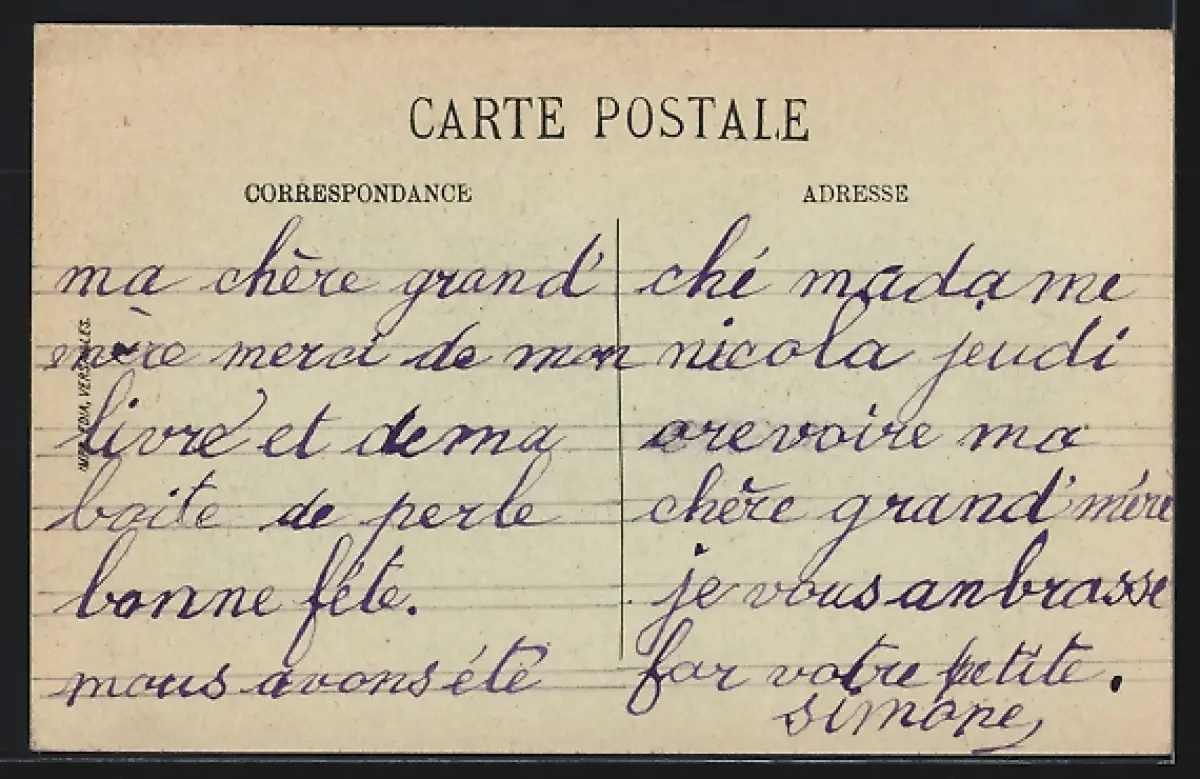 CARTE POSTALE
CORRESPONDANCE
ma chère grand'
mère merci de mon
livre et de ma
boite de perle
bonne féte.
nous avons été
ADRESSE
ché madame
nicola jeudi
orevoire ma
chère grand'mére
je vous anbrasse
for votre petite.
simone